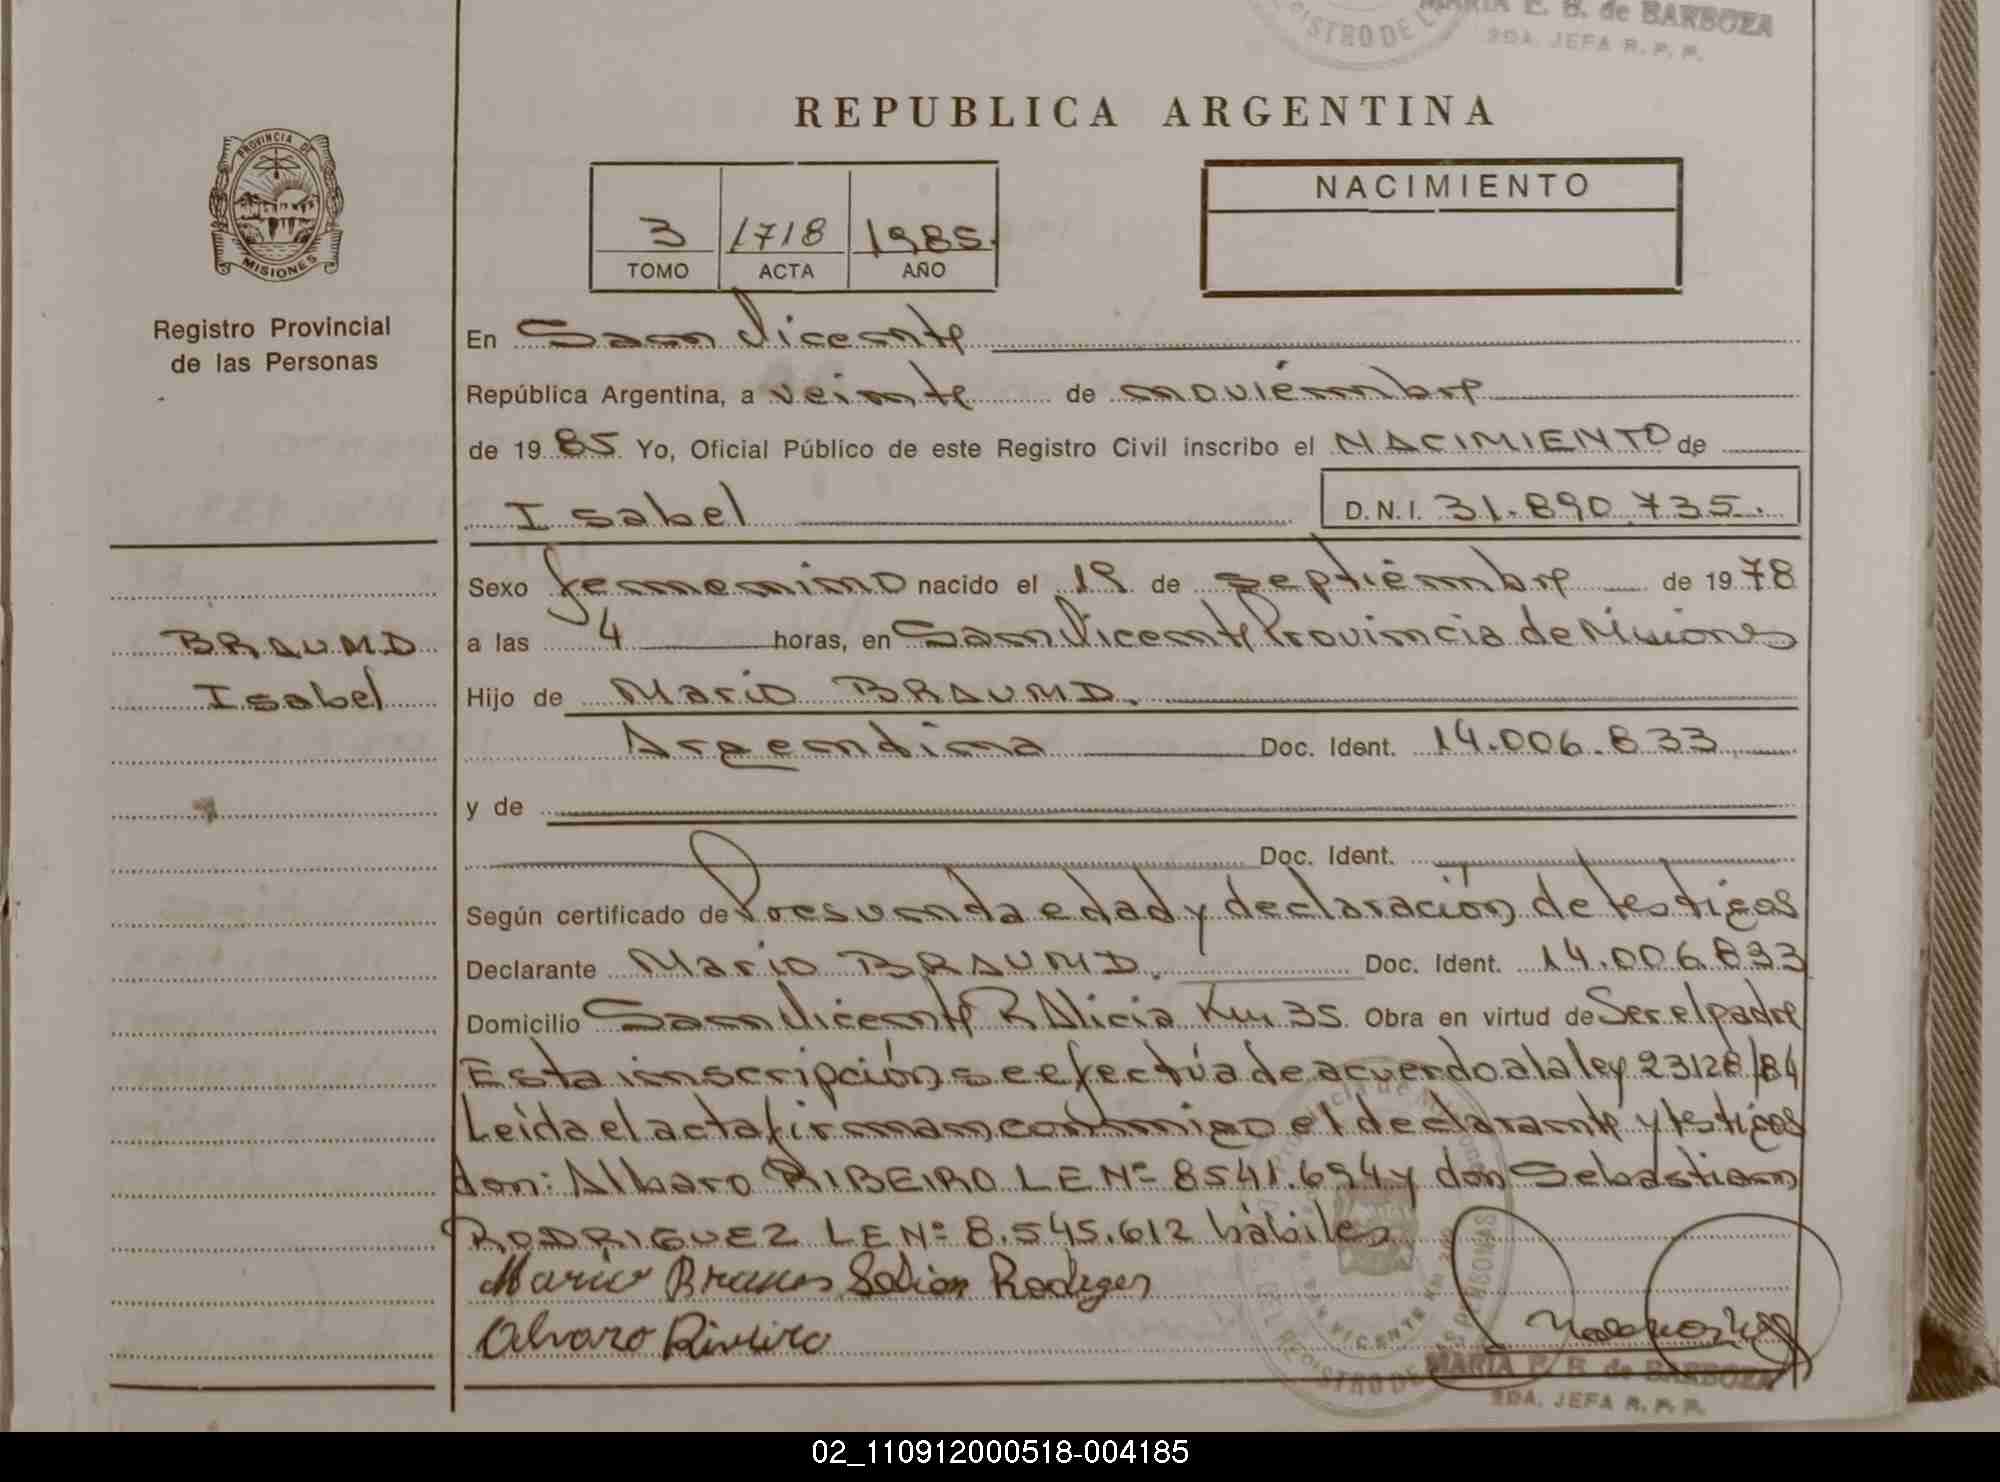 MARIA E. B. de BARBOZA
2DA. JEFA R. P. P.
REPUBLICA ARGENTINA
PROVINCIA DE
MISIONES
Registro Provincial
de las Personas
3 1718 1985.
TOMO ACTA AÑO
NACIMIENTO
En San Vicente
República Argentina, a veinte de noviembre
de 19 85 Yo, Oficial Público de este Registro Civil inscribo el NACIMIENTO de
Isabel D.N.I. 31.890.735.
Sexo femenino nacido el 19 de septiembre de 19 78
a las 4 horas, en San Vicente Provincia de Misiones
BRAUND
Isabel
Hijo de Mario BRAUND.
Argentina Doc. Ident. 14.006.833
y de
Doc. Ident.
Según certificado de Presunta edad y declaración de testigos
Declarante Mario BRAUND. Doc. Ident. 14.006.833
Domicilio San Vicente R Alicia Km 35 Obra en virtud de Ser el padre
Esta inscripción se efectúa de acuerdo a la ley 23128/84
Leída el acta firman conmigo el declarante y testigos
don: Albaro RIBEIRO LE Nº 8541.694 y don Sebastian
RODRIGUEZ LE Nº 8.545.612 hábiles
Mario
Alvaro
MARIA E. B. de BARBOZA
2DA. JEFA R. P. P.
02_110912000518-004185